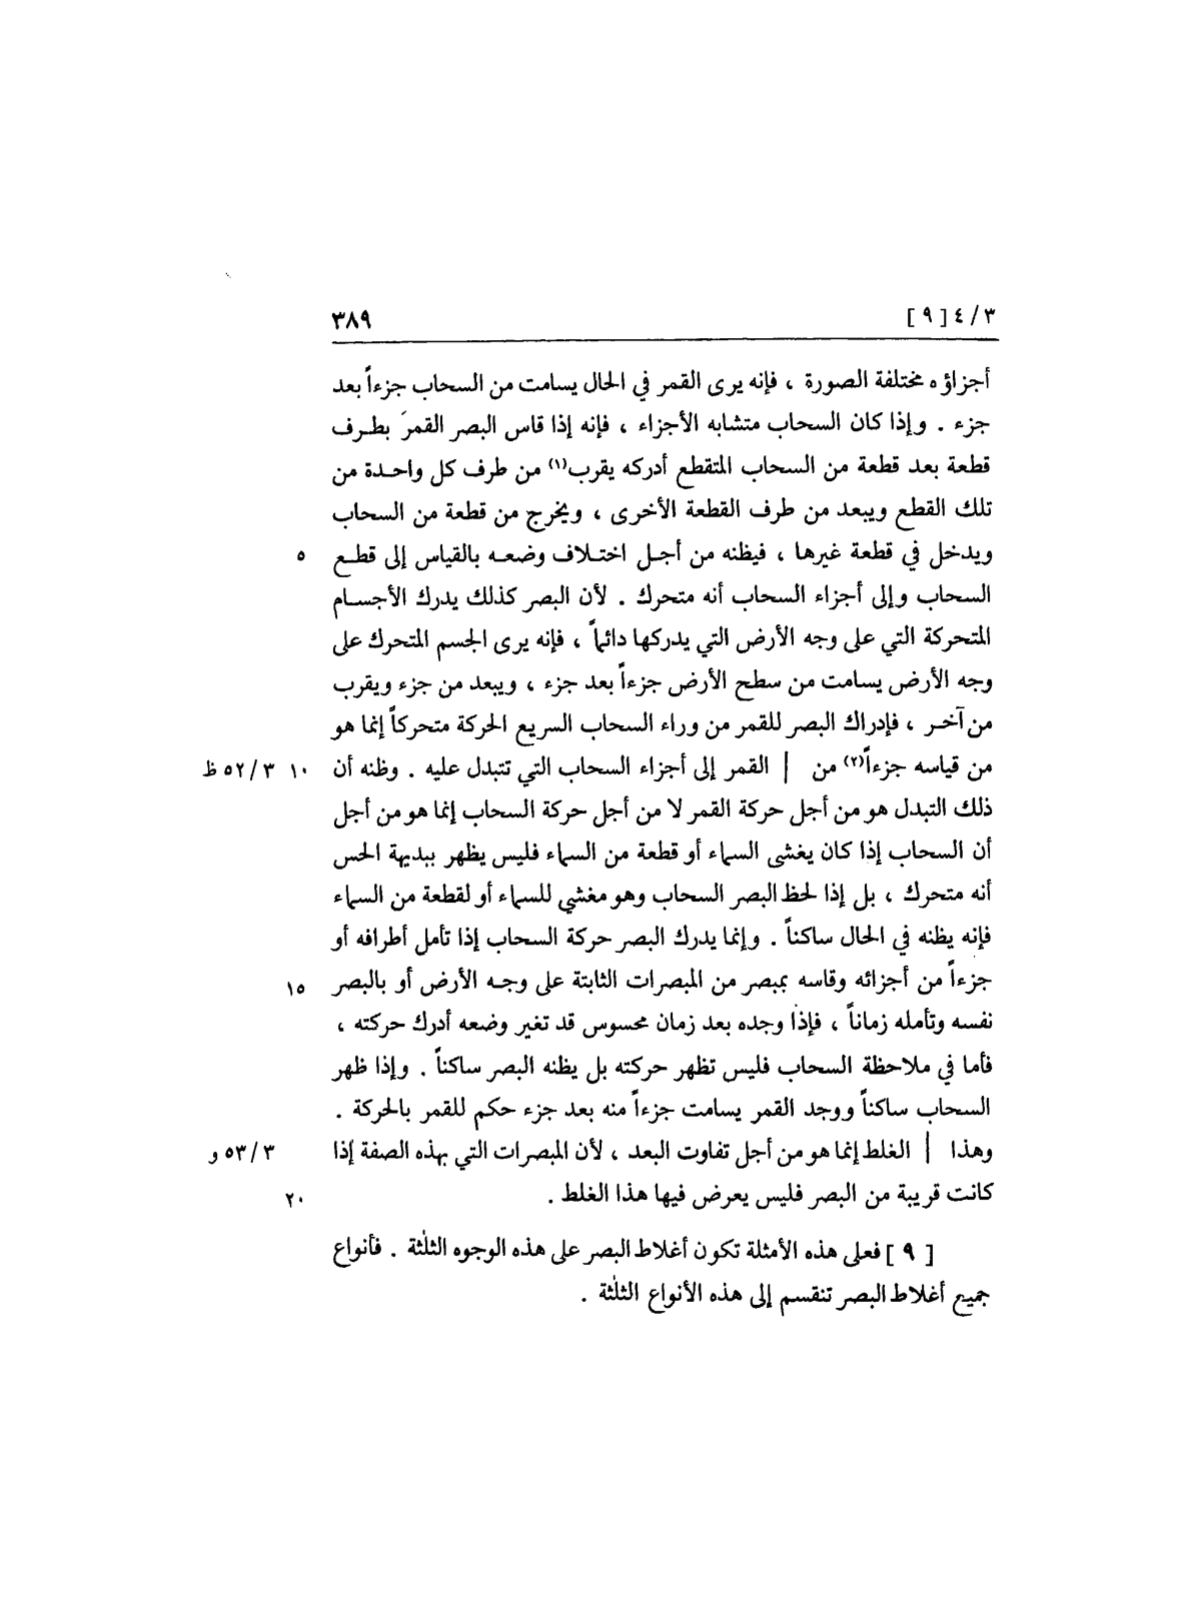 ٣/٤ [ ٩ ] ٣٨٩
أجزاؤه مختلفة الصورة ، فإنه يرى القمر في الحال يسامت من السحاب جزءاً بعد
جزء . وإذا كان السحاب متشابه الأجزاء ، فإنه إذا قاس البصر القمرَ بطرف
قطعة بعد قطعة من السحاب المتقطع أدركه يقرب(١) من طرف كل واحدة من
تلك القطع ويبعد من طرف القطعة الأخرى ، ويخرج من قطعة من السحاب
ويدخل في قطعة غيرها ، فيظنه من أجل اختلاف وضعه بالقياس إلى قطع ٥
السحاب وإلى أجزاء السحاب أنه متحرك . لأن البصر كذلك يدرك الأجسام
المتحركة التي على وجه الأرض التي يدركها دائماً ، فإنه يرى الجسم المتحرك على
وجه الأرض يسامت من سطح الأرض جزءاً بعد جزء ، ويبعد من جزء ويقرب
من آخر ، فإدراك البصر للقمر من وراء السحاب السريع الحركة متحركاً إنما هو
من قياسه جزءاً(٢) من | القمر إلى أجزاء السحاب التي تتبدل عليه . وظنه أن ١٠ ٣/٥٢ ظ
ذلك التبدل هو من أجل حركة القمر لا من أجل حركة السحاب إنما هو من أجل
أن السحاب إذا كان يغشى السماء أو قطعة من السماء فليس يظهر ببديهة الحس
أنه متحرك ، بل إذا لحظ البصر السحاب وهو مغشي للسماء أو لقطعة من السماء
فإنه يظنه في الحال ساكناً . وإنما يدرك البصر حركة السحاب إذا تأمل أطرافه أو
جزءاً من أجزائه وقاسه بمبصر من المبصرات الثابتة على وجه الأرض أو بالبصر ١٥
نفسه وتأمله زماناً ، فإذا وجده بعد زمان محسوس قد تغير وضعه أدرك حركته ،
فأما في ملاحظة السحاب فليس تظهر حركته بل يظنه البصر ساكناً . وإذا ظهر
السحاب ساكناً ووجد القمر يسامت جزءاً منه بعد جزء حكم للقمر بالحركة .
وهذا | الغلط إنما هو من أجل تفاوت البعد ، لأن المبصرات التي بهذه الصفة إذا ٣/٥٣ و
كانت قريبة من البصر فليس يعرض فيها هذا الغلط . ٢٠
[ ٩ ] فعلى هذه الأمثلة تكون أغلاط البصر على هذه الوجوه الثلٰثة . فأنواع
جميع أغلاط البصر تنقسم إلى هذه الأنواع الثلٰثة .